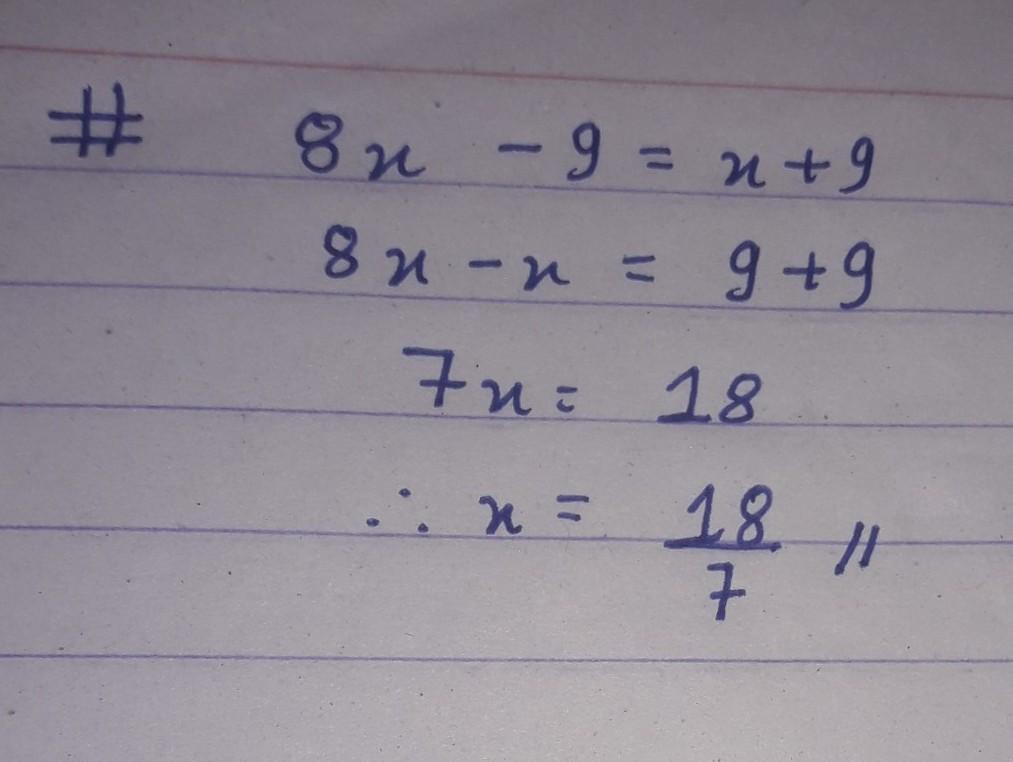 # 8x - 9 = x + 9
8x - x = 9 + 9
7x = 18
∴ x = 18/7 //